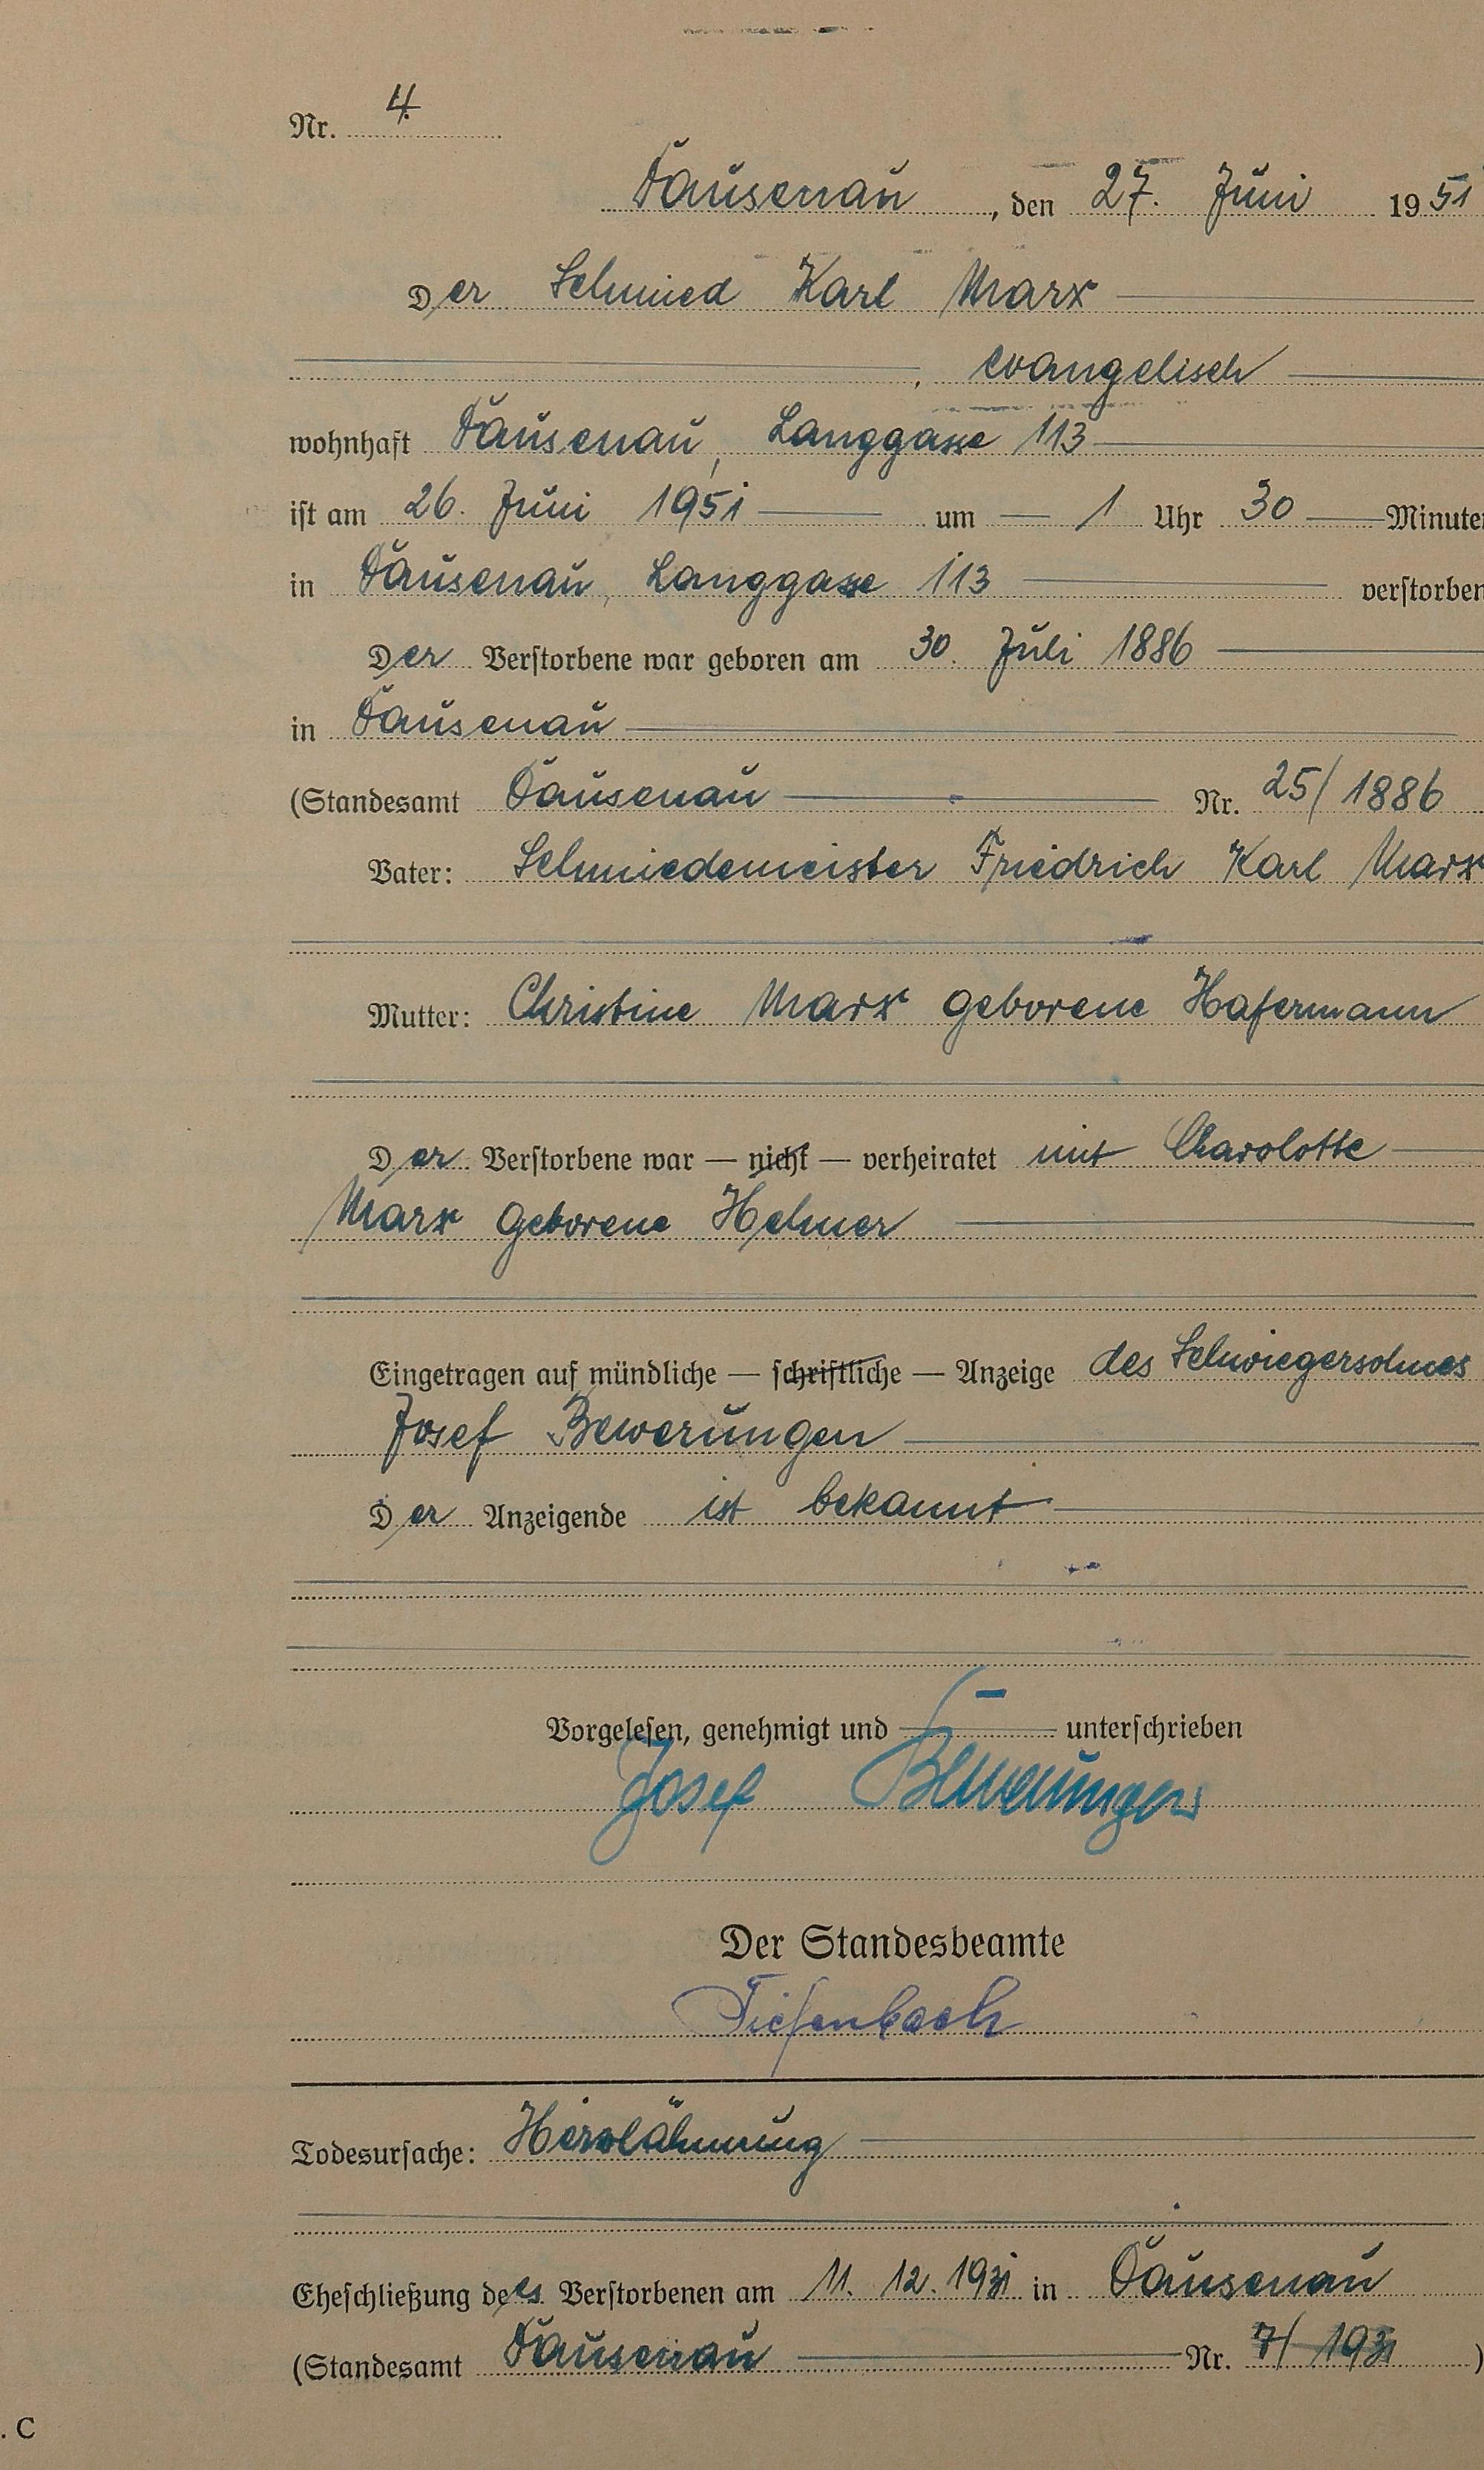 Nr. 4.
Dausenau, den 27. Juni 1951
Der Schmied Karl Marx
, evangelisch
wohnhaft Dausenau, Langgasse 113
ist am 26. Juni 1951 um 1 Uhr 30 Minuten
in Dausenau, Langgasse 113 verstorben
Der Verstorbene war geboren am 30. Juli 1886
in Dausenau
(Standesamt Dausenau Nr. 25/1886
Vater: Schmiedemeister Friedrich Karl Marx
Mutter: Christine Marx geborene Hafermann
Der Verstorbene war — nicht — verheiratet mit Charolotte
Marx geborene Helmer
Eingetragen auf mündliche — schriftliche — Anzeige des Schwiegersohnes
Josef Bewerungen
Der Anzeigende ist bekannt
Vorgelesen, genehmigt und unterschrieben
Josef Bewerungen
Der Standesbeamte
Tiefenbach
Todesursache: Herzlähmung
Eheschließung des Verstorbenen am 11. 12. 1931 in Dausenau
(Standesamt Dausenau Nr. 7/1931)
. C